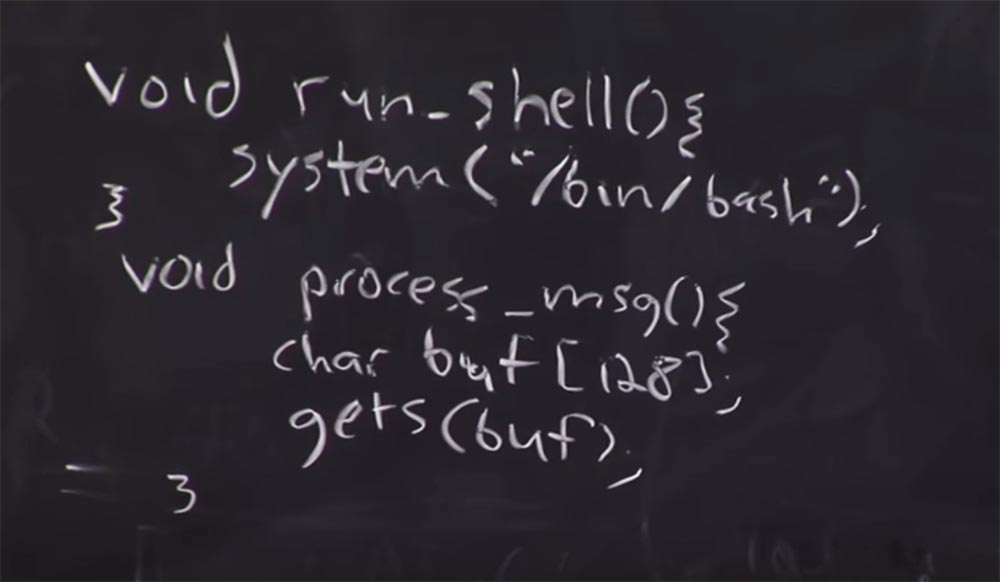 void run_shell(){
system("/bin/bash");
}
void process_msg(){
char buf[128];
gets(buf);
}